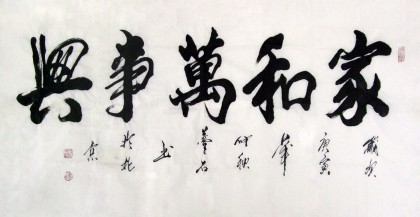 家和萬事興
歲次
庚寅
年
仲秋
书
於北
京